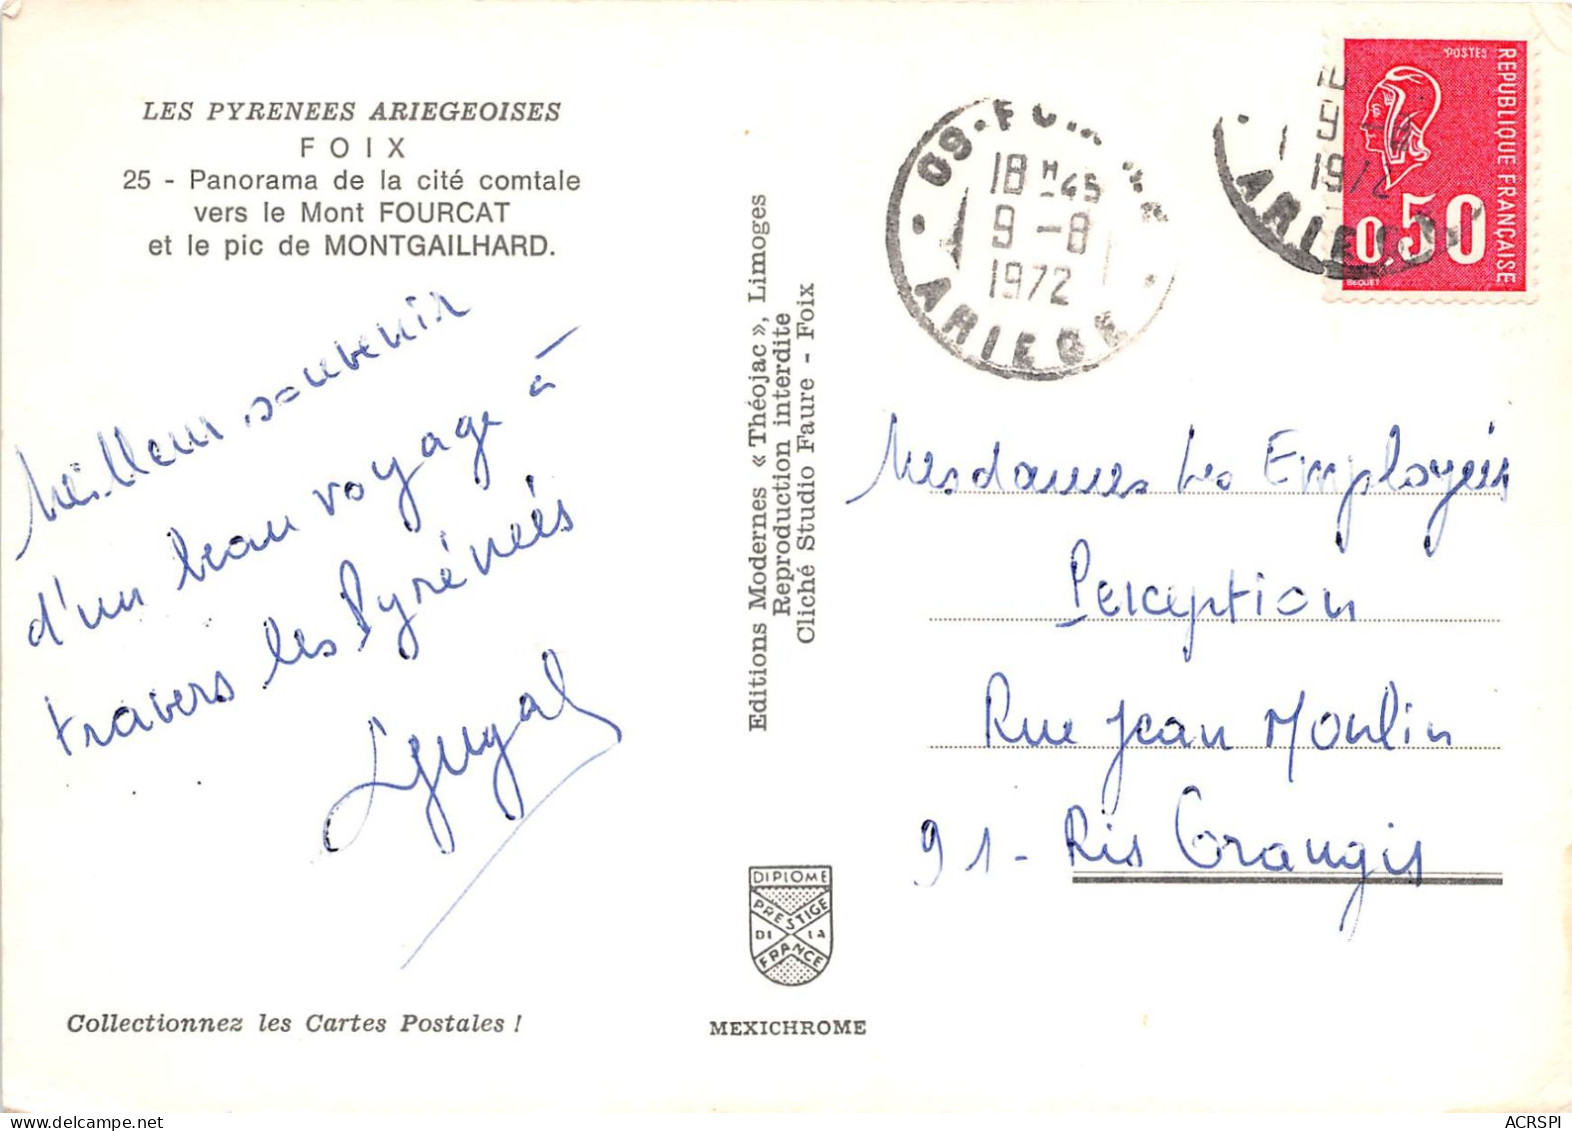 LES PYRENEES ARIEGEOISES
FOIX
25 - Panorama de la cité comtale
vers le Mont FOURCAT
et le pic de MONTGAILHARD.
Meilleur souvenir
d'un beau voyage à
travers les Pyrénées
Collectionnez les Cartes Postales !
Editions Modernes « Théojac », Limoges
Reproduction interdite
Cliché Studio Faure - Foix
DIPLOME
PRESTIGE
DE LA
FRANCE
MEXICHROME
09-FOIX
18 H 45
9 -8
1972
ARIEGE
18
9 -8
1972
ARIEGE
POSTES
REPUBLIQUE FRANÇAISE
0,50
BEQUET
Mesdames les Employées
Perception
Rue Jean Moulin
91 - Ris Orangis
ACRSPI